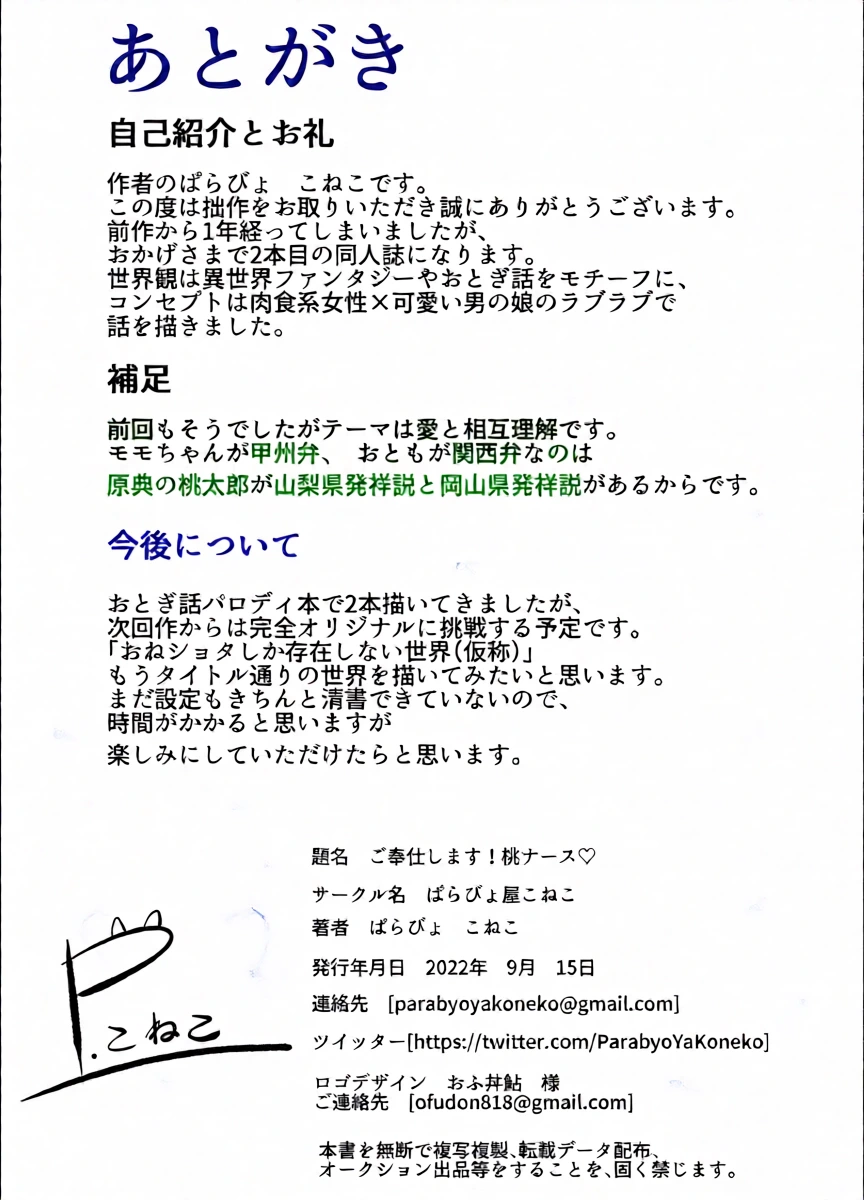 あとがき
自己紹介とお礼
作者のぱらびょ　こねこです。
この度は拙作をお取りいただき誠にありがとうございます。
前作から1年経ってしまいましたが、
おかげさまで2本目の同人誌になります。
世界観は異世界ファンタジーやおとぎ話をモチーフに、
コンセプトは肉食系女性×可愛い男の娘のラブラブで
話を描きました。
補足
前回もそうでしたがテーマは愛と相互理解です。
モモちゃんが甲州弁、　おともが関西弁なのは
原典の桃太郎が山梨県発祥説と岡山県発祥説があるからです。
今後について
おとぎ話パロディ本で2本描いてきましたが、
次回作からは完全オリジナルに挑戦する予定です。
「おねショタしか存在しない世界(仮称)」
もうタイトル通りの世界を描いてみたいと思います。
まだ設定もきちんと清書できていないので、
時間がかかると思いますが
楽しみにしていただけたらと思います。
題名　ご奉仕します！桃ナース♡
サークル名　ぱらびょ屋こねこ
著者　ぱらびょ　こねこ
発行年月日　2022年　9月　15日
連絡先　[parabyoyakoneko@gmail.com]
ツイッター[https://twitter.com/ParabyoYaKoneko]
P.こねこ
ロゴデザイン　おふ丼鮎　様
ご連絡先　[ofudon818@gmail.com]
本書を無断で複写複製、転載データ配布、
オークション出品等をすることを、固く禁じます。